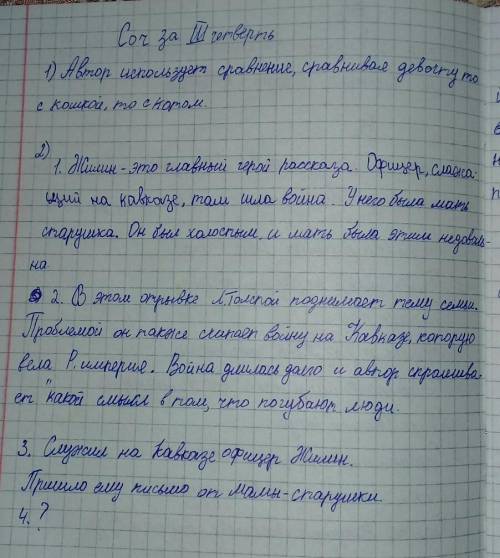 Соч за III четверть
1) Автор использует сравнение, сравнивая девочку то
с кошкой, то с котом.
2)
1. Жилин - это главный герой рассказа. Офицер, служа-
щий на Кавказе, там шла война. У него была мать
старушка. Он был холостым и мать была этим недоволь-
на
2. В этом отрывке Л.Толстой поднимает тему семьи.
Проблемой он также считает войну на Кавказе, которую
вела Р. империя. Война длилась долго и автор спрашива-
ет "какой смысл в том, что погубают люди.
3. Служил на Кавказе офицер Жилин.
Пришло ему письмо от мамы-старушки
4. ?